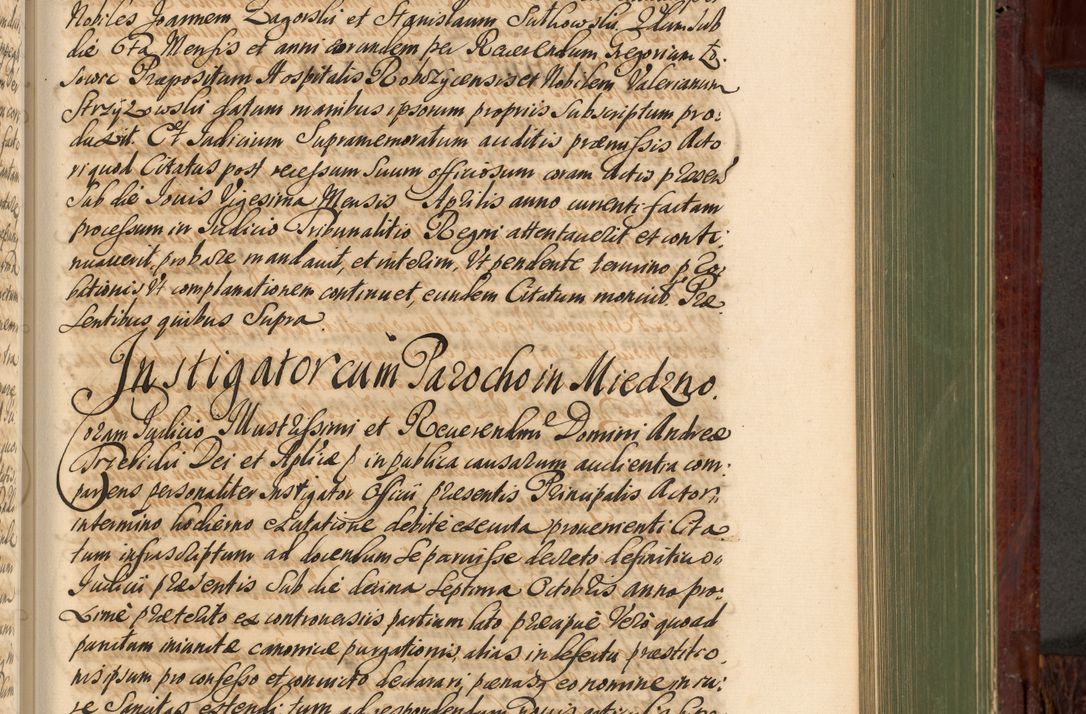 Nobiles Joannem Zagorski et Stanislaum Sutkowski
die 6ta Mensis et anni eorundem per Reuerendum Gregorium
Præpositum Hospitalis Robszycensis et Nobilem Valerianum
Strzyzowski datum manibus ipsorum propriis Subscriptum pro:
duxit. Et Judicium Supramemoratum auditis præmissis Acto
ri quod Citatus post recessum Suum officiosum coram Actis præsen
Sub die Jouis Vigesima Mensis Aprilis anno currenti factam
processum in Judicio Tribunalitio Regni attentauerit et conti
nuauerit, probare mandauit, et interim, Vt pendente termino pro
bationis Vt complanationem continuet, eundem Citatum monuit. Præ
sentibus quibus Supra.
Instigator cum Parocho in Miedzno.
Coram Judicio Illustrissimi et Reuerendmi Domini Andreæ
Trzebicki Dei et Aplicæ in publica causarum audientia com:
parens personaliter Instigator Officii præsentis Principalis Actor,
in termino hodierno ex citatione debite executa prouementi Cita
tum infrascriptum ad docendum Se paruisse decreto definitiuo
Judicii præsentis Sub die decima Septima Octobris anno pro:
ximè præterito ex controuersiis partium lato præapuè Verò quoad
panitam canonicæ purgationis, alias in defectu præstitio
nis ipsum pro confesso et conuicto declarari, pænasq eo nomine in iu:
re Sancitas extendi tum ad respondendum